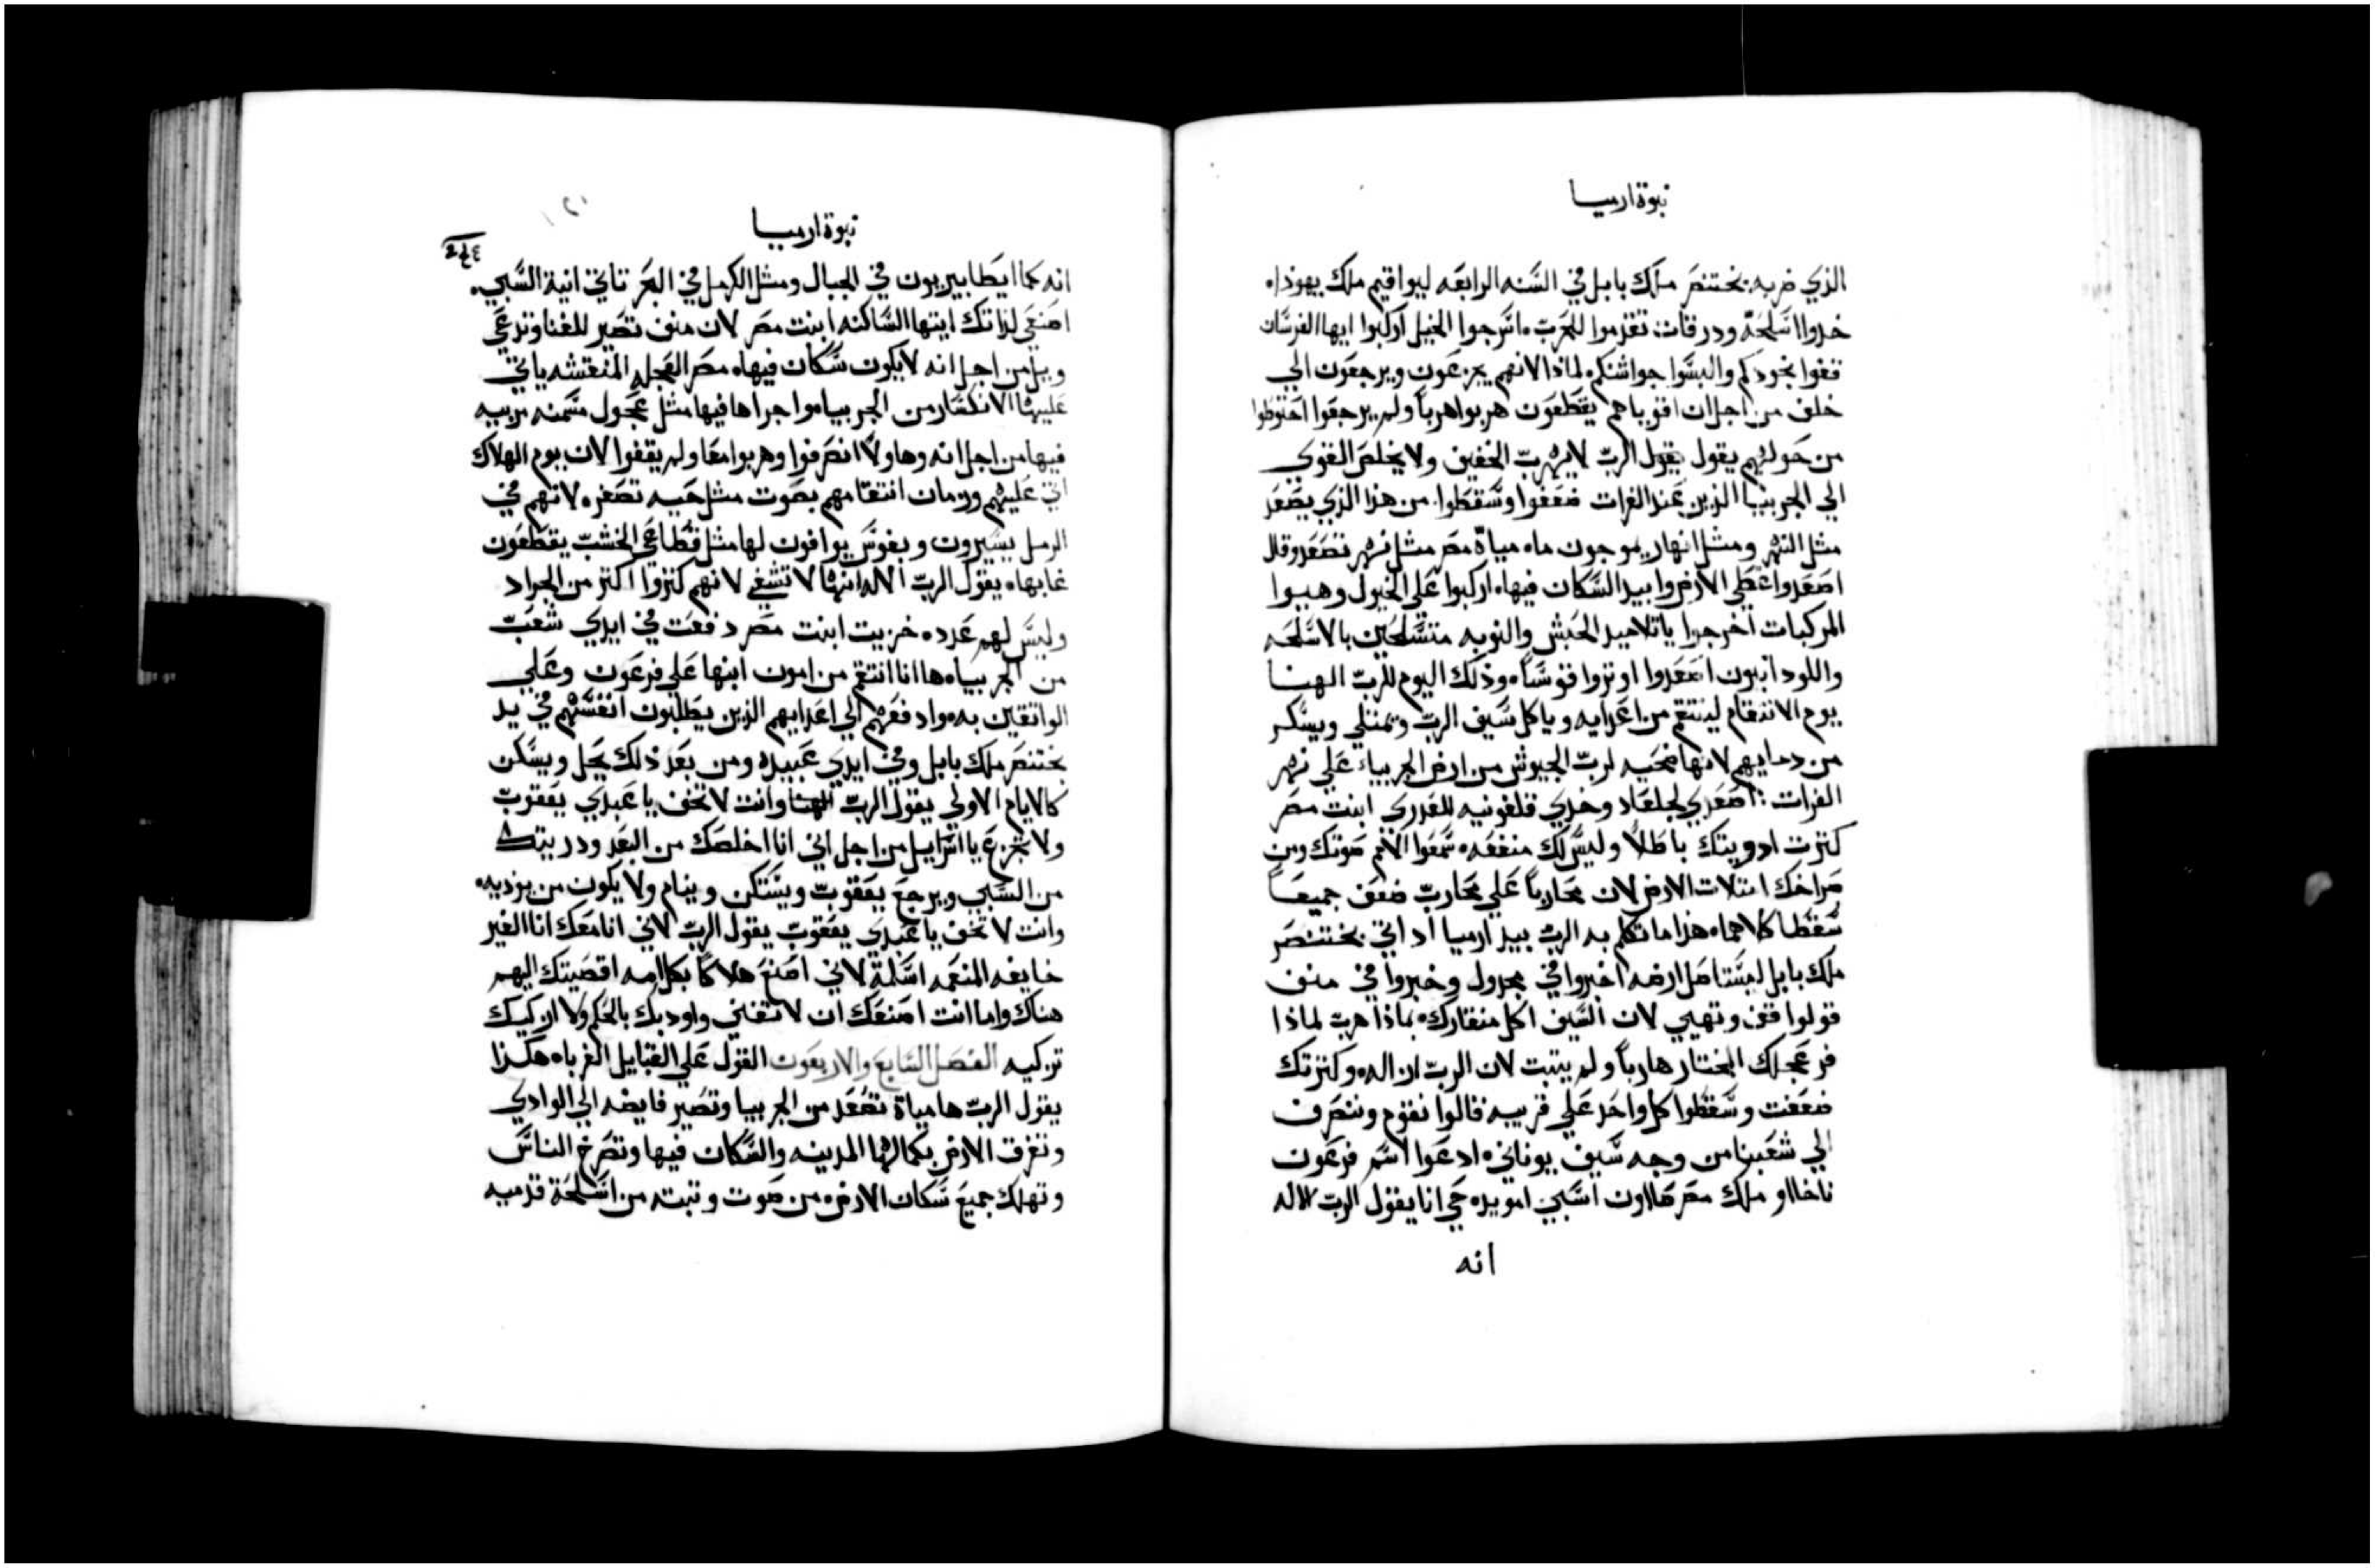 نبوة ارميا
الذي ضربه بختنصر ملك بابل في السنه الرابعه ليواقيم ملك يهوذا ه
خدوا اسلحة ودرقات تقدموا للحرب ه اسرجوا الخيل اركبوا ايها الفرسان
قفوا بخودكم والبسوا جواشنكم لماذا لانهم يجزعون ويرجعون الي
خلف من اجل ان اقوياهم يقطعون هربوا هرباً ولم يرجعوا احتوطوا
من حولهم يقول يقول الرب لا يهرب الخفيف ولا يخلص القوي
الي الجربيا الذين عند الفرات ضعفوا وسقطوا. من هذا الذي يصعد
مثل النهر ومثل انهار يموجون ماه مياة مصر مثل نهر تصعد وقال
اصعد واغطي الارض وابيد السكان فيها ه اركبوا علي الخيول وهيوا
المركبات اخرجوا يا تلاميد الحبش والنوبه متسلحين بالاسلحه
واللودانيون اصعدوا اوتروا قوساً ه وذلك اليوم للرب الهنا
يوم الانتقام لينتقم من اعدايه وياكل سيف الرب وتمتلي ويسكر
من دمايهم لانها ضحيه لرب الجيوش من ارض الجربياء علي نهر
الفرات : اصعدي لجلعاد وخدي قلفونيه للعدري ابنت مصر
كترت ادويتك باطلاً وليس لك منفعه ه سمعوا الامم صوتك ومن
صراخك امتلات الارض لان محارباً علي محارب ضعف جميعاً
سقطا كلاهما ه هذا ما تكلم به الرب بيد ارميا اد اتي بختنصر
ملك بابل ليستاصل ارضه اخبروا في مجدول وخبروا في منف
قولوا قف وتهيي لان السيف اكل منقارك ه بماذا هرب لماذا
فر عجلك المختار هارباً ولم يتبت لان الرب اداله ه وكترتك
ضعفت وسقطوا كل واحد علي قريبه قالوا نقوم وننصرف
الي شعبنا من وجه سيف يوناني ه ادعوا اسم فرعون
ناخااو ملك مصر صااون اسبي امويده حي انا يقول الرب الاله
انه
نبوة ارميا
انه كما ايطابيريون في الجبال ومثل الكرمل في البحر تاتي انية السبي.
اصنعي لذاتك ايتها الساكنه ابنت مصر لان منف تصير للفنا وتدعي
ويل من اجل انه لا يكون سكان فيها ه مصر العجله المنعتشه ياتي
عليها الانكسار من الجربيا ه واجراها فيها مثل عجول مسمنه مربيه
فيها من اجل انه وهاولا انصرفوا وهربوا معا ولم يقفوا لان يوم الهلاك
اتي عليهم وزمان انتقامهم بصوت مثل حيه تصفر ه لانهم في
الرمل يسيرون وبفوس يوافون لها مثل قطاعي الخشب يقطعون
غابها ه يقول الرب الاله انها لا تشفي لانهم كتروا اكتر من الجراد
وليس لهم عدد ه خزيت ابنت مصر دفعت في ايدي شعب
من الجربيا ه ها انا انتقم من امون ابنها علي فرعون وعلي
الواتقين به ه وادفعهم الي اعدايهم الذين يطلبون انفسهم في يد
بختنصر ملك بابل وفي ايدي عبيده ومن بعد ذلك يحل ويسكن
كالايام الاولي يقول الرب الهنا وانت لا تخف يا عبدي يعقوب
ولا تجزع يا اسرايل من اجل اني انا اخلصك من البعد ودريتك
من السبي ويرجع يعقوب ويستكن وينام ولا يكون من يوديه ه
وانت لا تخف يا عبدي يعقوب يقول الرب لاني انا معك انا الغير
خايفه المنعمه اسلمة لاني اصنع هلاكاً بكل امه اقصيتك اليهم
هناك واما انت اصنعك ان لا تفني واودبك بالحكم ولا ازكيك
تزكيه الفصل السابع والاربعون القول علي القبايل الغرباه هكذا
يقول الرب ها مياة تصعد من الجربيا وتصير فايضه الي الوادي
وتغرق الارض بكمالها المدينه والسكان فيها وتصرخ الناس
وتهلك جميع سكان الارض ه من صوت وتبته من اسلحة قدميه